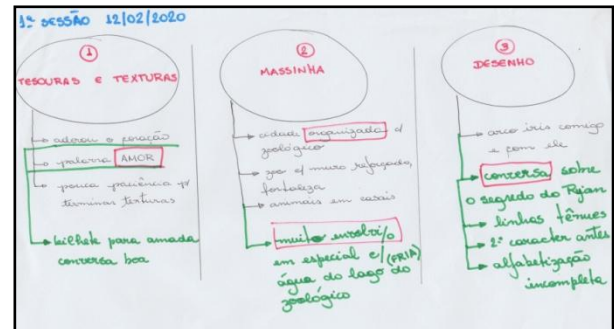 1ª SESSÃO 12/02/2020
①
TESOURAS E TEXTURAS
→ adorou o coração
→ palavra AMOR
→ pouca paciência p/
terminar texturas
→ bilhete para amada
conversa boa
②
MASSINHA
→ cidade organizada c/
zoológico
→ zoo c/ muro reforçado,
fortaleza
→ animais em casais
→ muito envolvi/o
em especial c/ (FRIA)
água do lago do
zoológico
③
DESENHO
→ arco iris comigo
e com ele
→ conversa sobre
o segredo do Ryan
→ linhas tênues
→ 2º caracter antes
→ alfabetização
incompleta